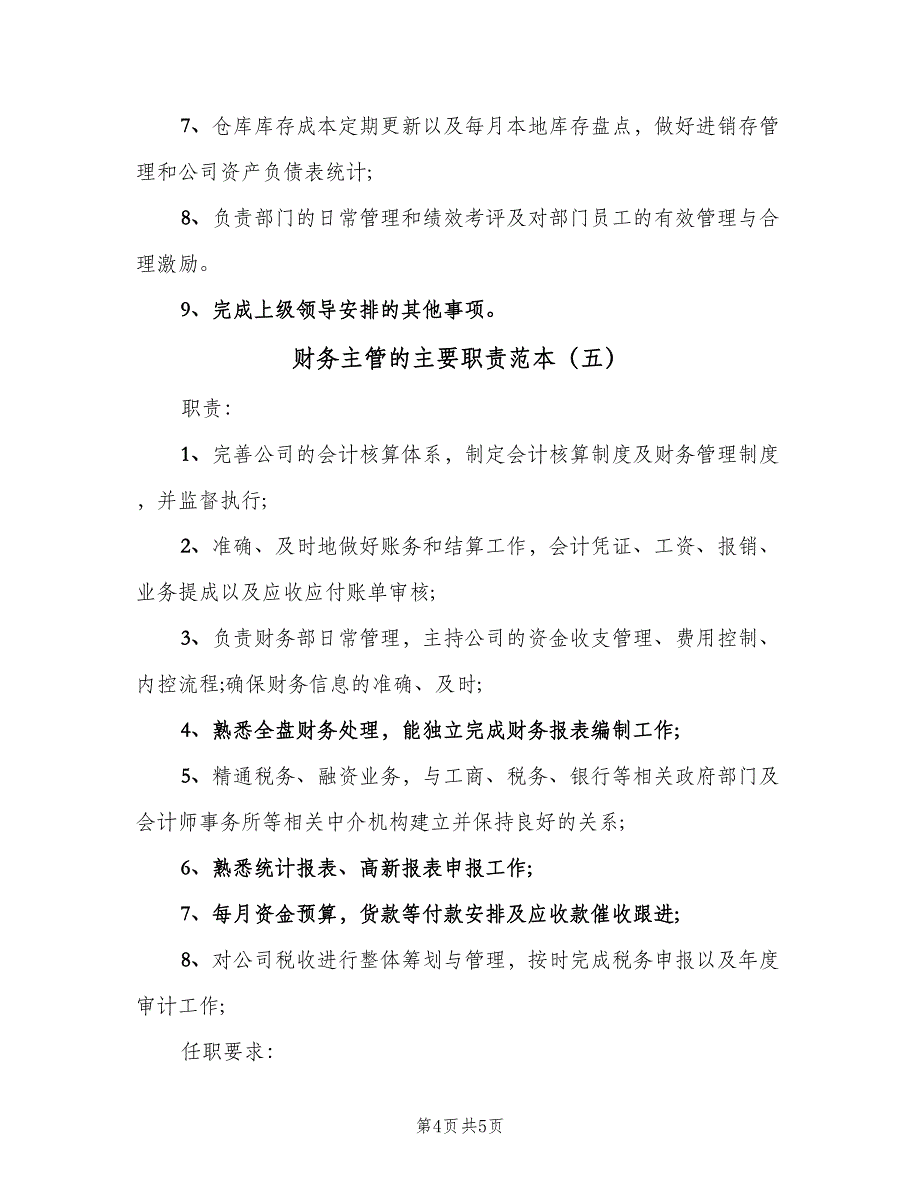 7、仓库库存成本定期更新以及每月本地库存盘点，做好进销存管
理和公司资产负债表统计;
8、负责部门的日常管理和绩效考评及对部门员工的有效管理与合
理激励。
9、完成上级领导安排的其他事项。
财务主管的主要职责范本（五）
职责：
1、完善公司的会计核算体系，制定会计核算制度及财务管理制度
，并监督执行;
2、准确、及时地做好账务和结算工作，会计凭证、工资、报销、
业务提成以及应收应付账单审核;
3、负责财务部日常管理，主持公司的资金收支管理、费用控制、
内控流程;确保财务信息的准确、及时;
4、熟悉全盘财务处理，能独立完成财务报表编制工作;
5、精通税务、融资业务，与工商、税务、银行等相关政府部门及
会计师事务所等相关中介机构建立并保持良好的关系;
6、熟悉统计报表、高新报表申报工作;
7、每月资金预算，货款等付款安排及应收款催收跟进;
8、对公司税收进行整体筹划与管理，按时完成税务申报以及年度
审计工作;
任职要求：
第4页共5页